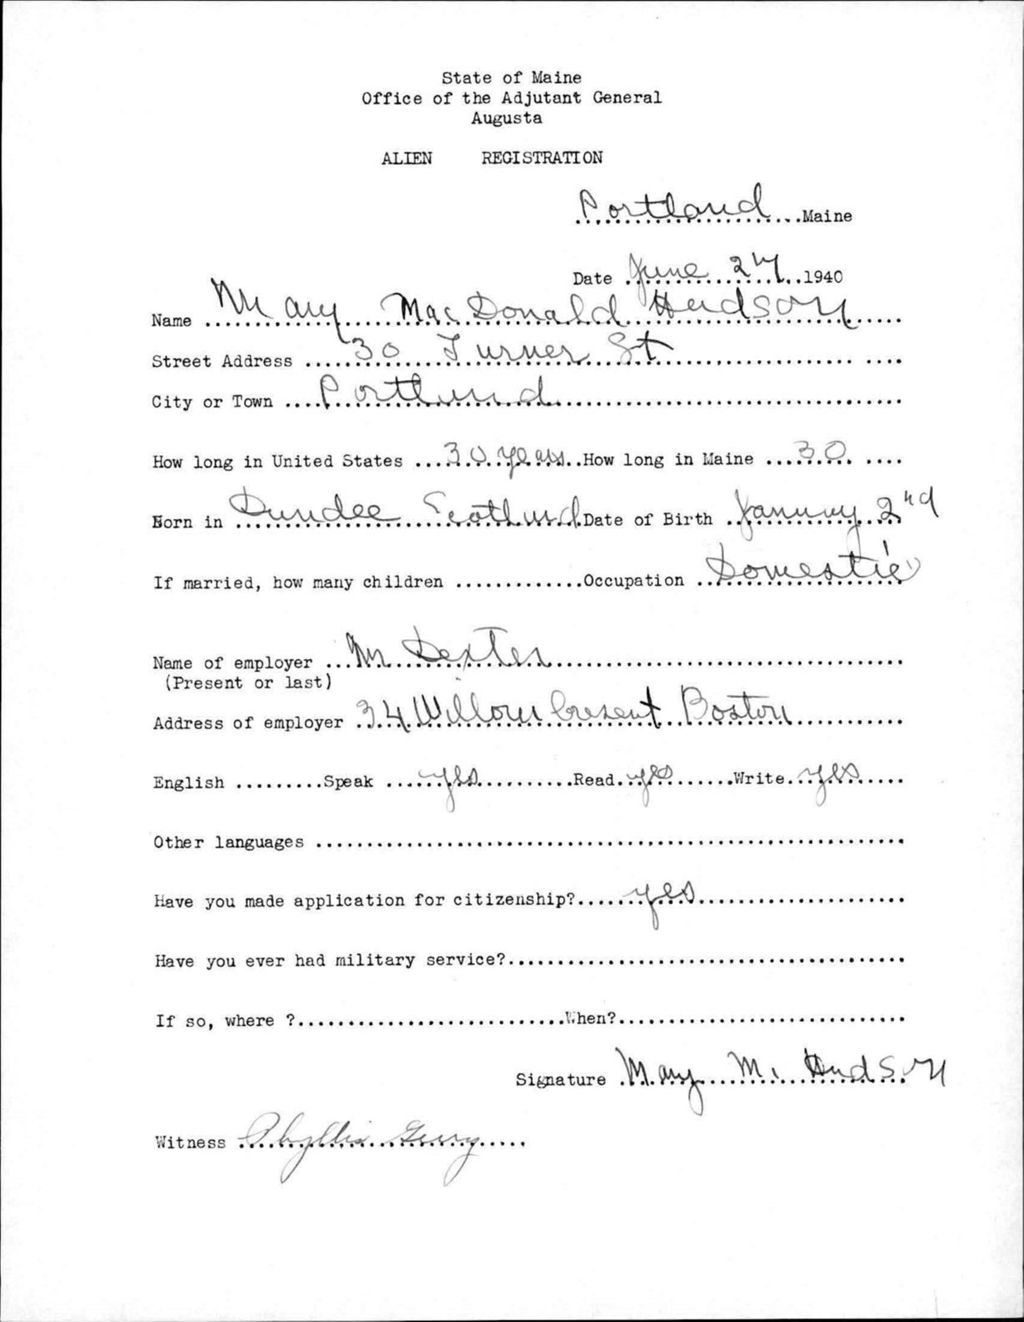 State of Maine
Office of the Adjutant General
Augusta
ALIEN REGISTRATION
Portland Maine
Date June 27 1940
Name Mary MacDonald Hudson
Street Address 30 Turner St
City or Town Portland
How long in United States 30 years How long in Maine 30
Born in Dundee Scotland Date of Birth January 2nd
If married, how many children Occupation Domestic
Name of employer Mr Dexter
(Present or last)
Address of employer 34 Willow Cresent Boston
English Speak yes Read yes Write yes
Other languages
Have you made application for citizenship? yes
Have you ever had military service?
If so, where ? When?
Signature Mary M. Hudson
Witness Phyllis Gerry